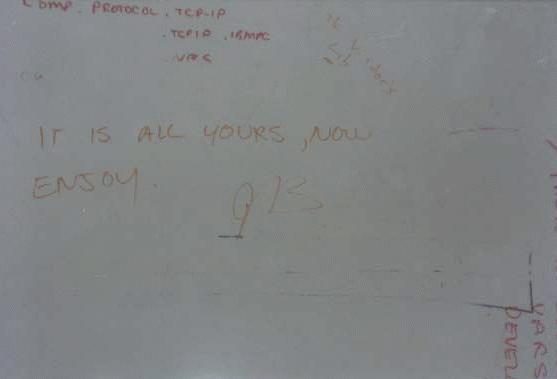 COMP. PROTOCOL. TCP-IP
.TCPIP .IBMPC
.VMS
IT IS ALL YOURS, NOW
ENJOY.
VARS
DEVEL